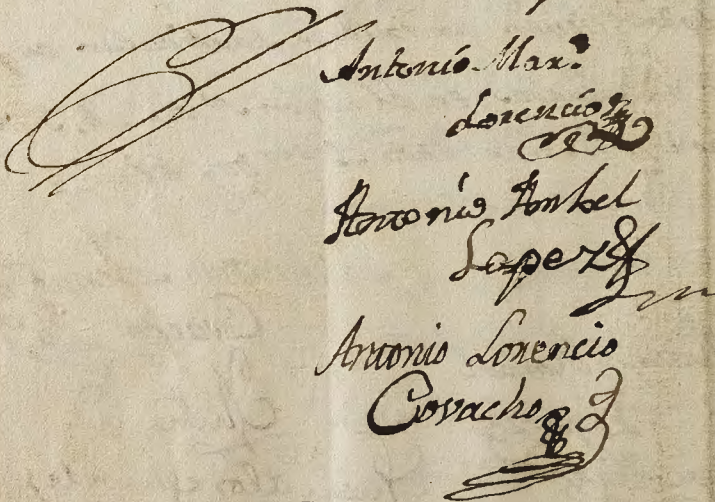 Antonio Mar.
Lorencio
Antonio Anhel
Lopez
Antonio Lorencio
Covacho